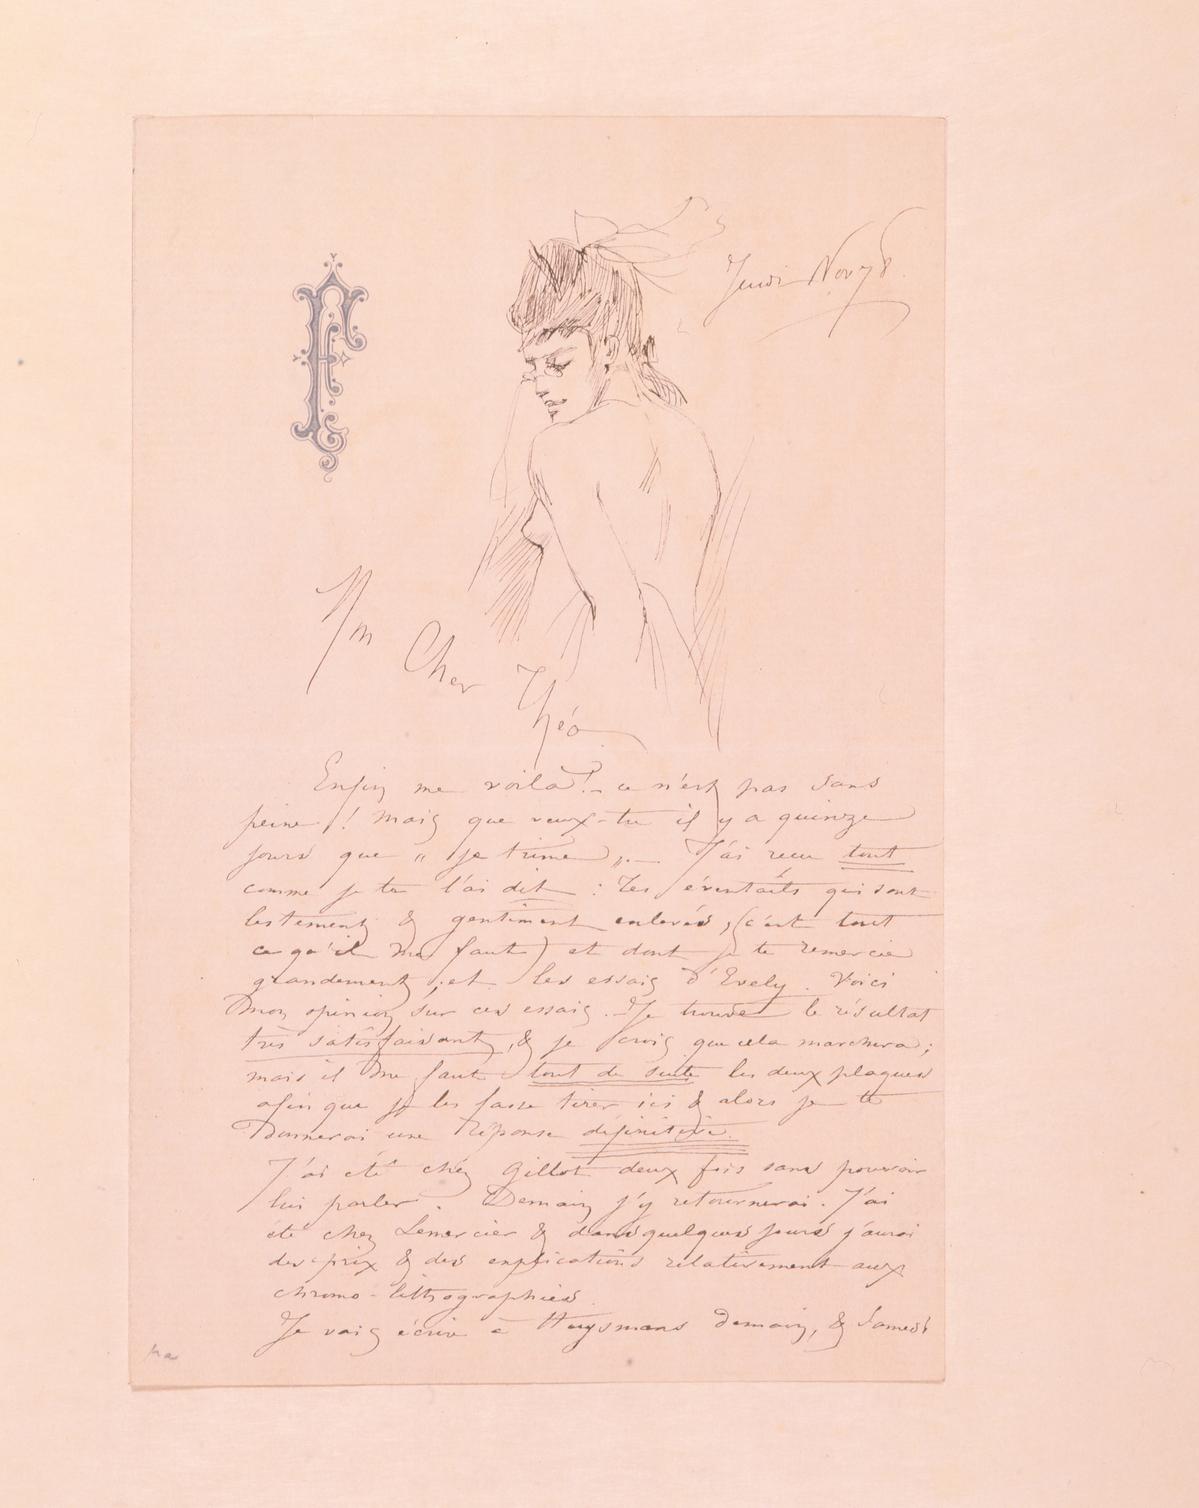 F
Jeudi Nov 78.
Mn Cher Théo
Enfin me voila! - ce n'est pas sans
peine! Mais que veux-tu il y a quinze
jours que "je trime". - J'ai recu tout
comme je te l'ai dit : Les éventails qui sont
lestement & gentiment enlevés, (c'est tout
ce qu'il me faut) et dont je te remercie
grandement, et les essais d'Evely. Voici
mon opinion sur ces essais. Je trouve le résultat
très satisfaisant, & je crois que cela marchera;
mais il me faut tout de suite les deux plaques
afin que je les fasse tirer ici & alors je te
donnerai une réponse définitive.
J'ai été chez Gillot deux fois sans pouvoir
lui parler. Demain j'y retournerai. J'ai
été chez Lemercier & dans quelques jours j'aurai
des prix & des explications relativement aux
chromo-lithographies.
Je vais écrire à Huysmans demain, & Samedi